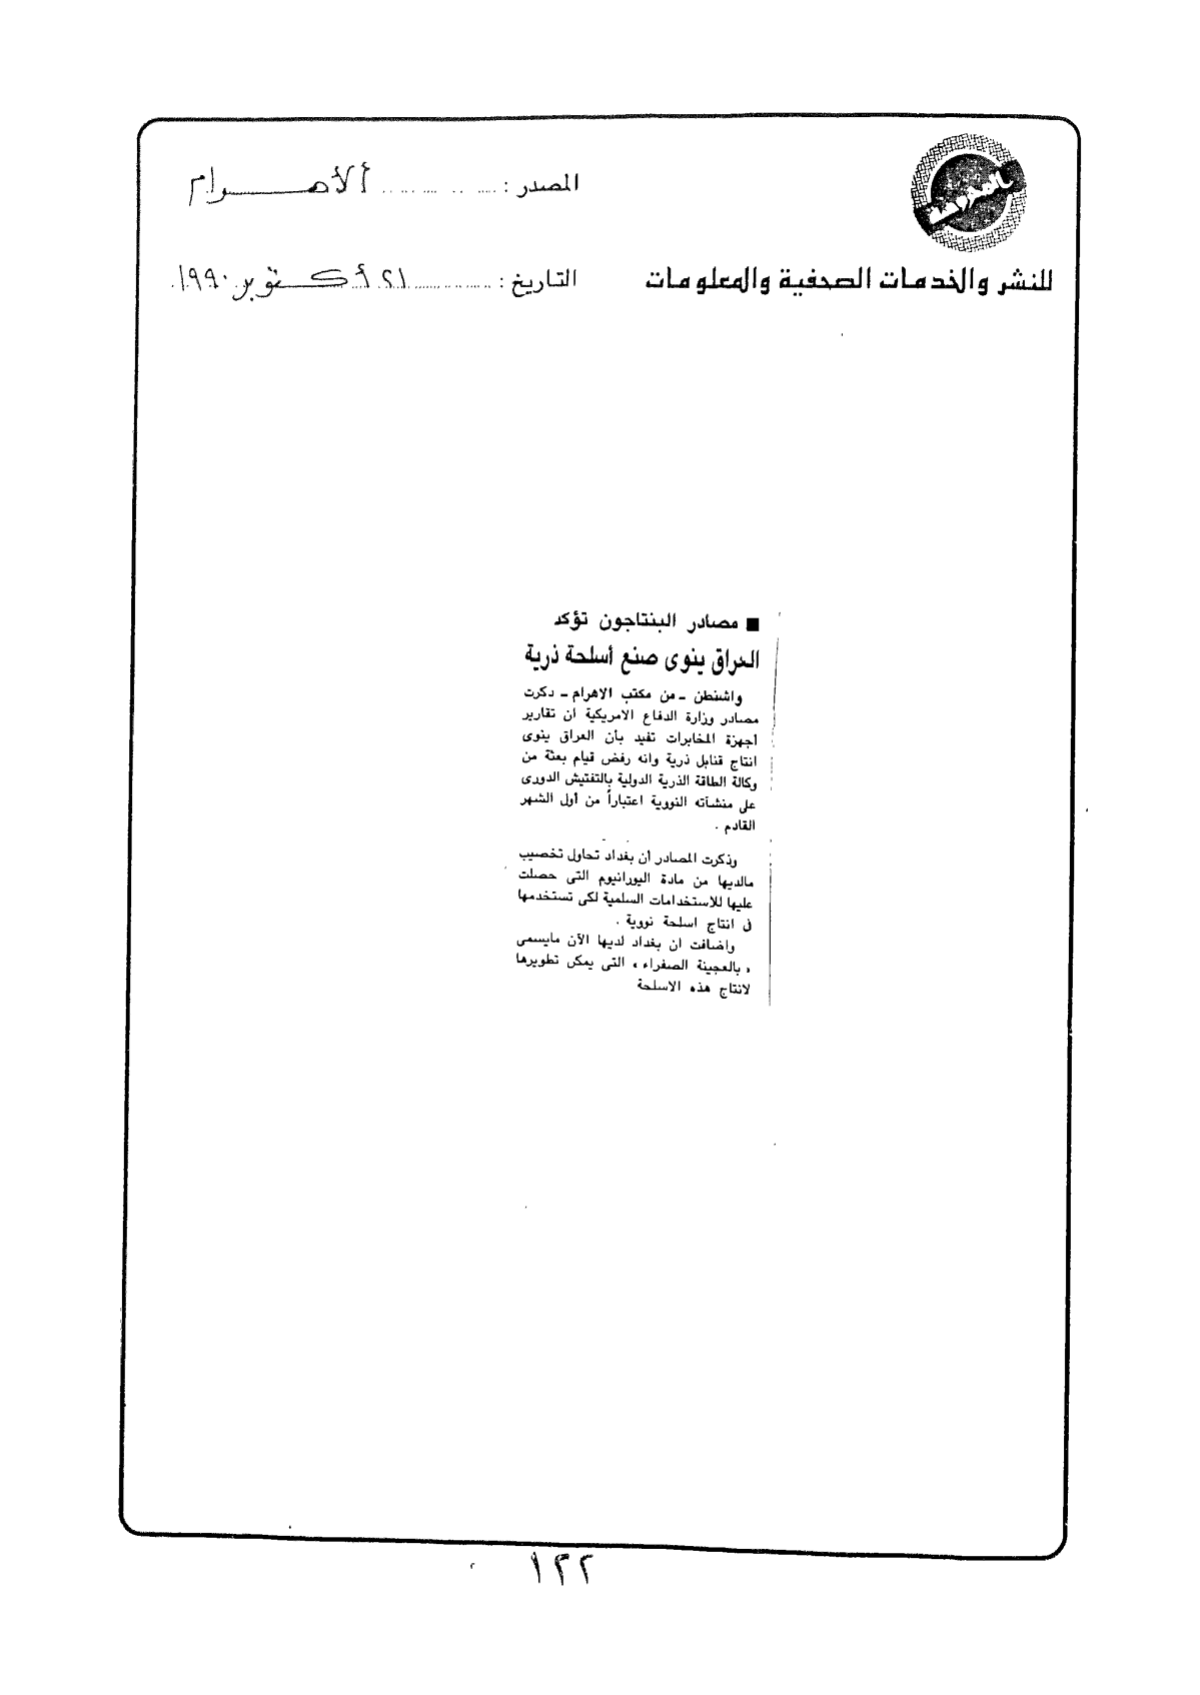 المصدر : ألأهـــرام
للنشر والخدمات الصحفية والمعلومات
التاريخ : ٢١ أكـتوبر ١٩٩٠
■ مصادر البنتاجون تؤكد
العراق ينوى صنع أسلحة ذرية
واشنطن ـ من مكتب الاهرام ـ ذكرت
مصادر وزارة الدفاع الامريكية ان تقارير
أجهزة المخابرات تفيد بأن العراق ينوى
انتاج قنابل ذرية وانه رفض قيام بعثة من
وكالة الطاقة الذرية الدولية بالتفتيش الدورى
على منشآته النووية اعتباراً من أول الشهر
القادم .
وذكرت المصادر أن بغداد تحاول تخصيب
مالديها من مادة اليورانيوم التى حصلت
عليها للاستخدامات السلمية لكى تستخدمها
فى انتاج اسلحة نووية .
واضافت ان بغداد لديها الآن مايسمى
« بالعجينة الصفراء » التى يمكن تطويرها
لانتاج هذه الاسلحة
١٢٢